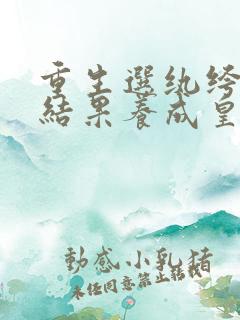 重生選紈絝
結果養成皇
動感小乳豬
未任同意禁止轉載